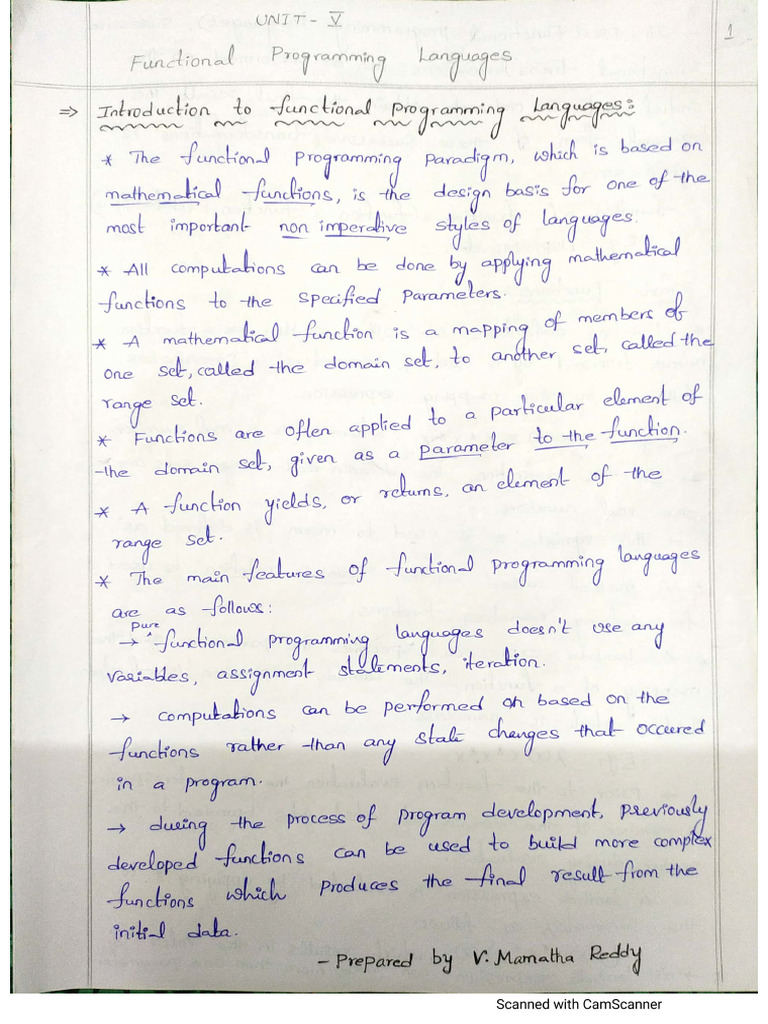 UNIT - V
1
Functional Programming Languages
⇒ Introduction to functional programming Languages:
* The functional programming paradigm, which is based on
mathematical functions, is the design basis for one of the
most important non imperative styles of languages.
* All computations can be done by applying mathematical
functions to the specified parameters.
* A mathematical function is a mapping of members of
one set, called the domain set, to another set, called the
range set.
* Functions are often applied to a particular element of
the domain set, given as a parameter to the function.
* A function yields, or returns, an element of the
range set.
* The main features of functional programming languages
are as follows:
→ pure functional programming languages doesn't use any
variables, assignment statements, iteration.
→ computations can be performed on based on the
functions rather than any state changes that occured
in a program.
→ during the process of program development, previously
developed functions can be used to build more complex
functions which produces the final result from the
initial data.
- Prepared by V. Mamatha Reddy
Scanned with CamScanner